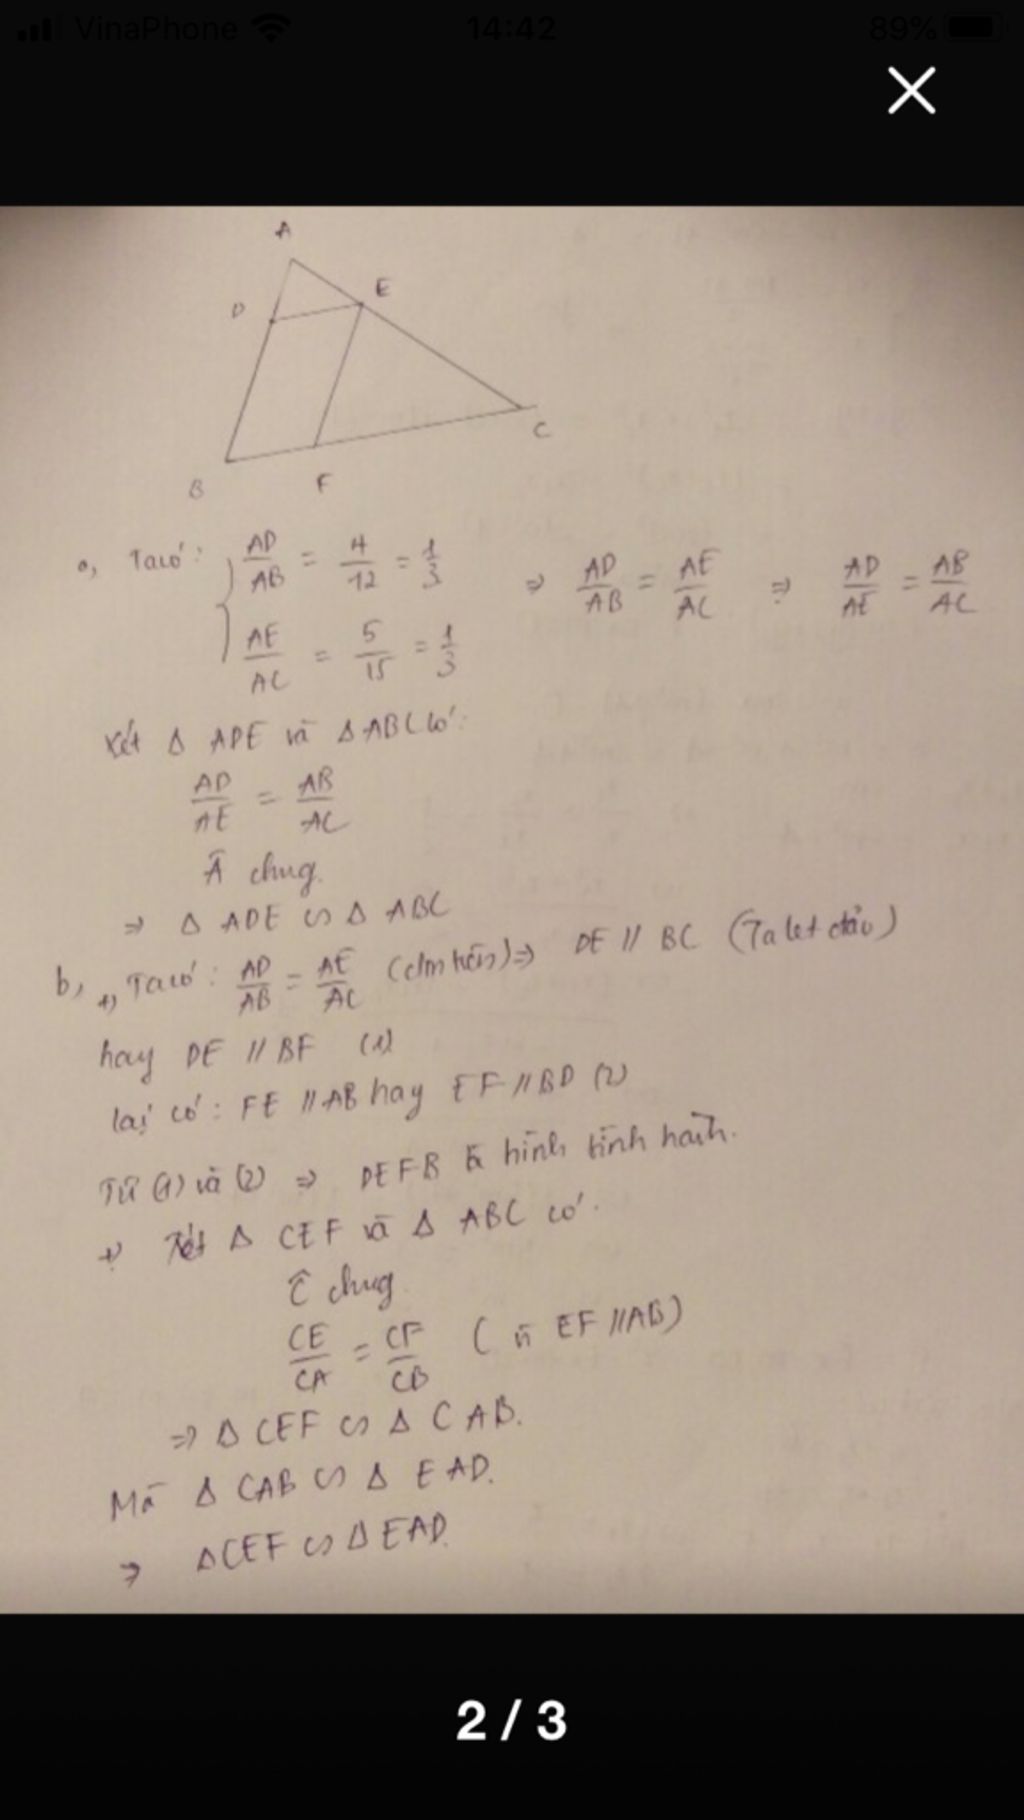 VinaPhone 14:42 89%
A
D E
C
B F
a, Ta có: AD/AB = 4/12 = 1/3 ⇒ AD/AB = AE/AC ⇒ AD/AE = AB/AC
AE/AC = 5/15 = 1/3
Xét Δ ADE và Δ ABC có:
AD/AE = AB/AC
Â chung.
⇒ Δ ADE ∽ Δ ABC
b, +, Ta có: AD/AB = AE/AC (cm trên) ⇒ DE // BC (Talet đảo)
hay DE // BF (1)
lại có: FE // AB hay EF // BD (2)
Từ (1) và (2) ⇒ DEFB là hình bình hành.
+, Xét Δ CEF và Δ ABC có:
Ĉ chung
CE/CA = CF/CB ( vì EF // AB)
⇒ Δ CEF ∽ Δ CAB.
Mà Δ CAB ∽ Δ EAD.
⇒ Δ CEF ∽ Δ EAD.
2 / 3